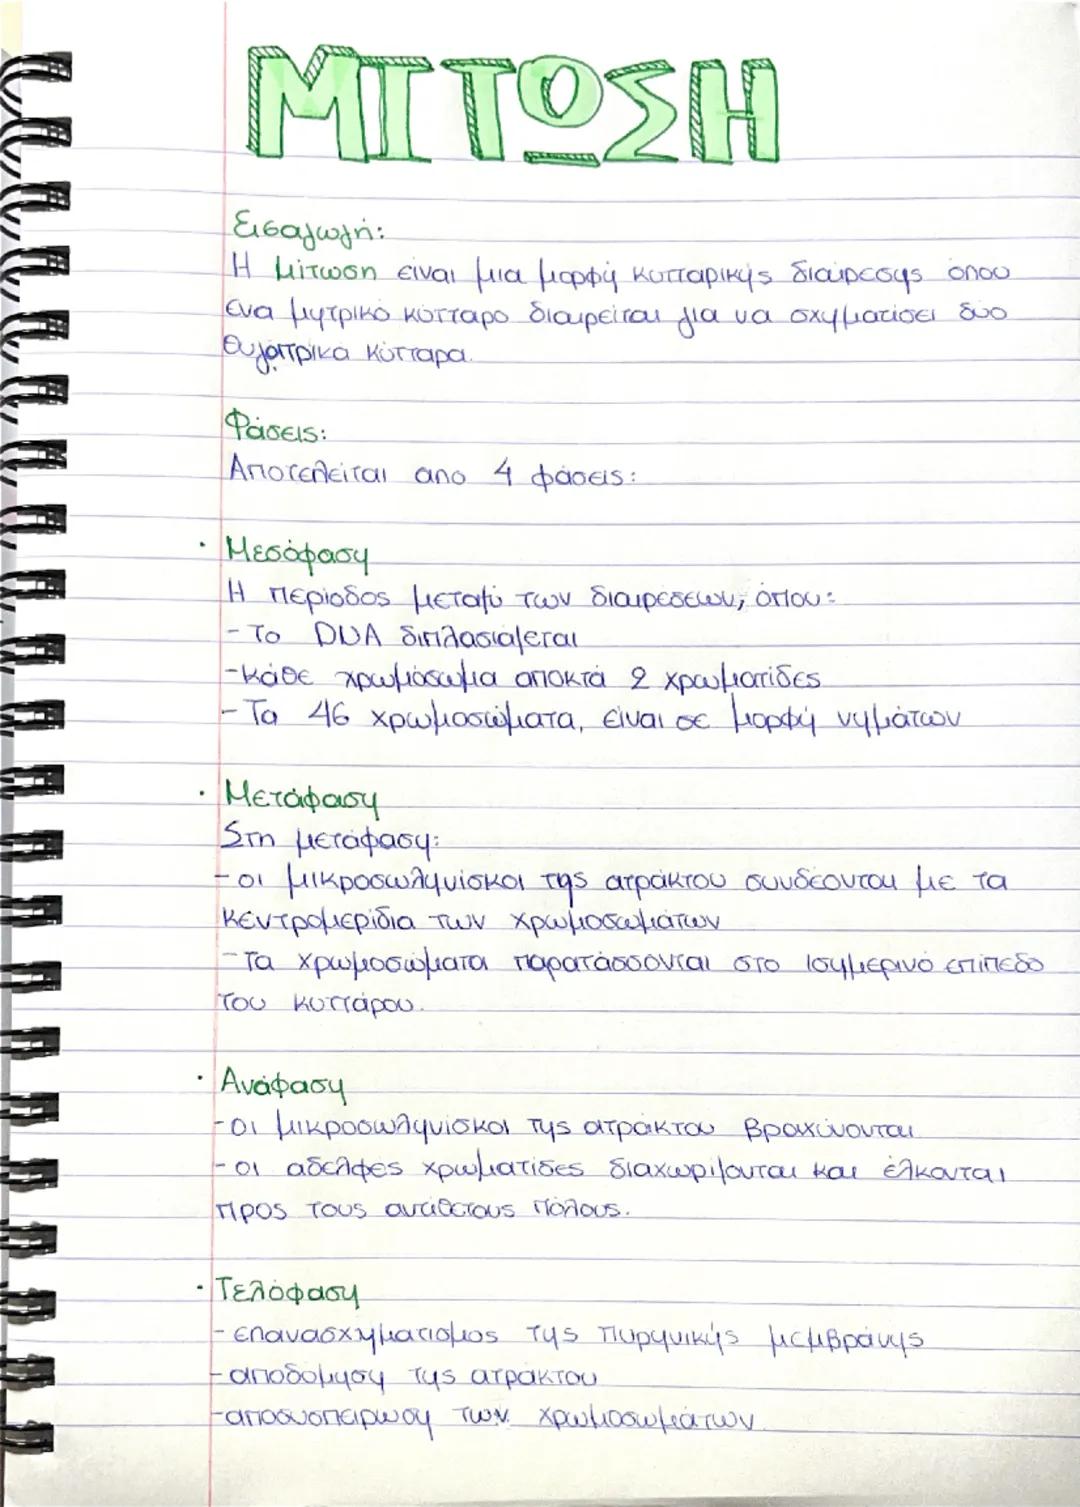 ΜΙΤΩΣΗ
Εισαγωγή:
Η μίτωση είναι μια μορφή κυτταρικής διαίρεσης όπου
ένα μητρικό κύτταρο διαιρείται για να σχηματίσει δύο
θυγατρικά κύτταρα.
Φάσεις:
Αποτελείται απο 4 φάσεις:
· Μεσόφαση
Η περίοδος μεταξύ των διαιρέσεων, όπου:
- Το DNA διπλασιάζεται
- κάθε χρωμόσωμα αποκτά 2 χρωματίδες
- Τα 46 χρωμοσώματα, είναι σε μορφή νημάτων
· Μετάφαση
Στη μετάφαση:
- οι μικροσωληνίσκοι της ατράκτου συνδέονται με τα
κεντρομερίδια των χρωμοσωμάτων
- Τα χρωμοσώματα παρατάσσονται στο ισημερινό επίπεδο
του κυττάρου.
· Ανάφαση
- οι μικροσωληνίσκοι της ατράκτου βραχύνονται
- οι αδελφές χρωματίδες διαχωρίζονται και έλκονται
προς τους αντίθετους πόλους.
· Τελόφαση
- επανασχηματισμος της πυρηνικής μεμβράνης
- αποδόμηση της ατράκτου
- αποσυσπείρωση των χρωμοσωμάτων